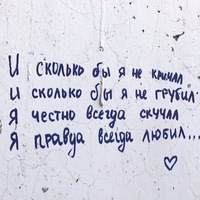 И сколько бы я не кричал
И сколько бы я не грубил
Я честно всегда скучал
Я правда всегда любил...